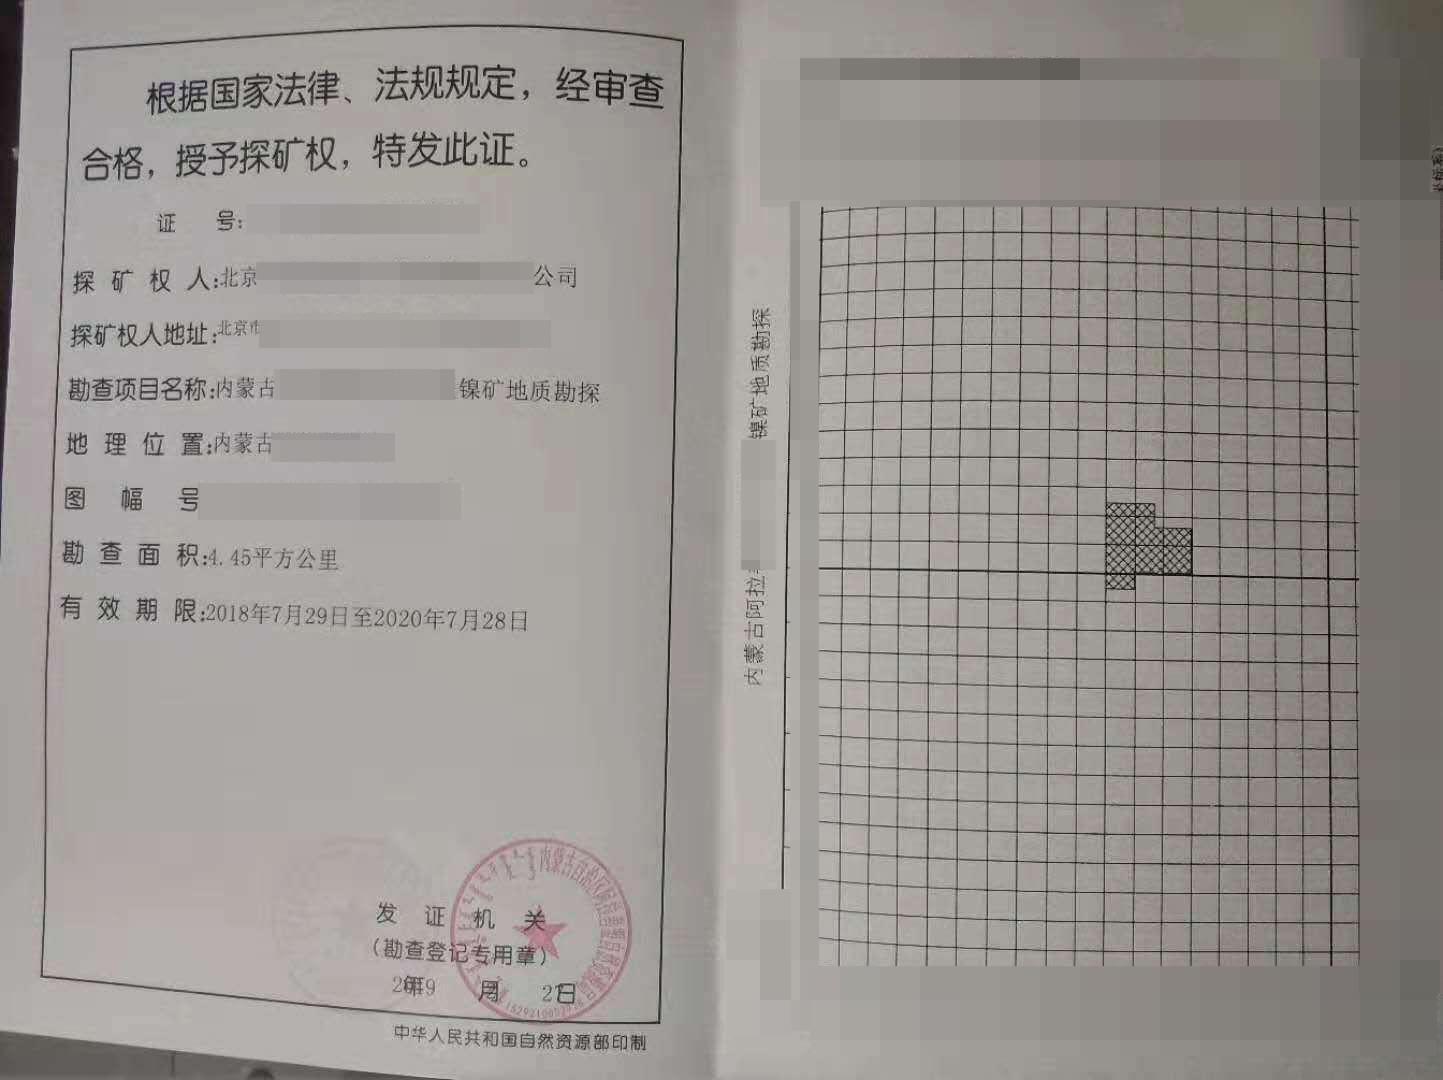 根据国家法律、法规规定，经审查
合格，授予探矿权，特发此证。
证 号：
探 矿 权 人：北京 公司
探矿权人地址：北京市
勘查项目名称：内蒙古 镍矿地质勘探
地 理 位 置：内蒙古
图 幅 号
勘 查 面 积：4.45平方公里
有 效 期 限：2018年7月29日至2020年7月28日
发 证 机 关
（勘查登记专用章）
月 日
中华人民共和国自然资源部印制
内蒙古阿拉 镍矿地质勘探
内蒙古自治区